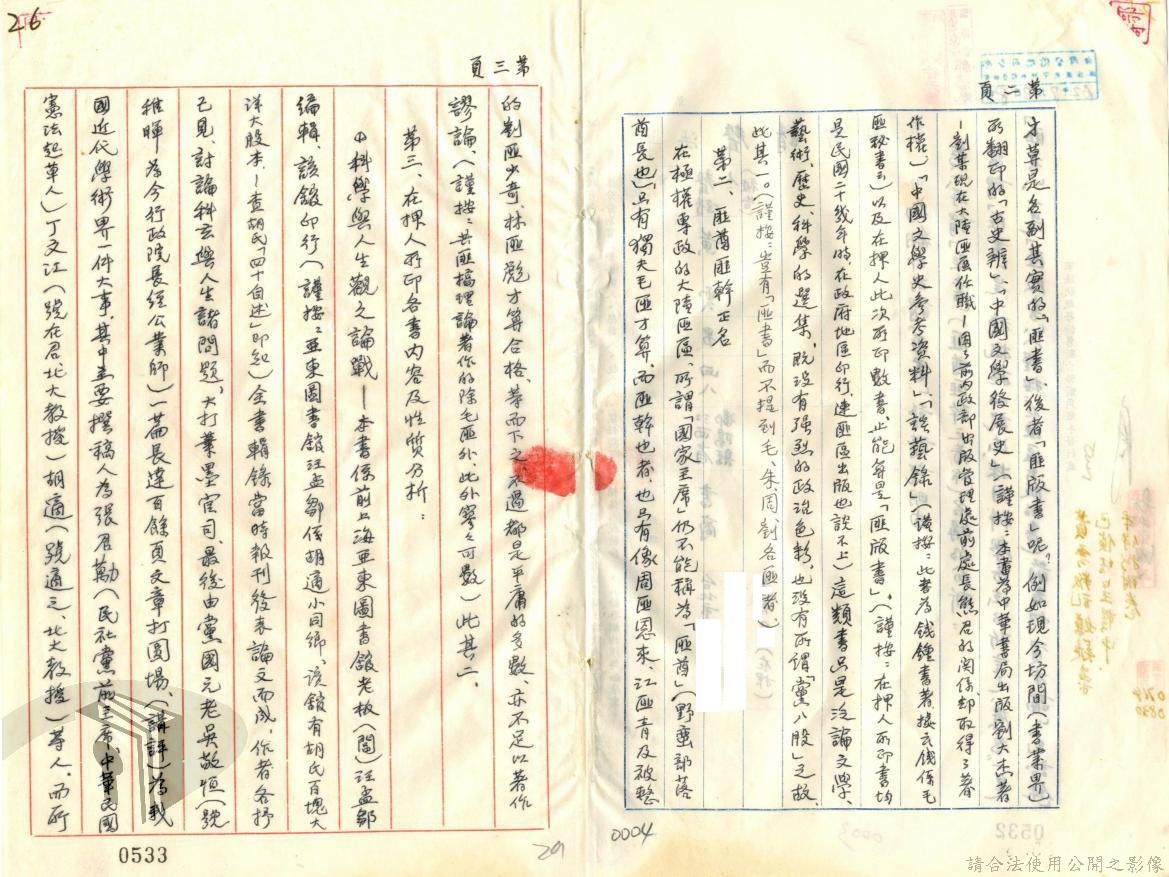 第二頁
才算是名副其實的「匪書」後者「匪版書」呢?例如現今坊間(書業界)
所翻印的「古史辨」「中國文學發展史」(謹按:本書為中華書局出版劉大杰著
—劉某現在大陸匪區任職—因了前內政部出版管理處前處長熊君的關係却取得了著
作權)「中國文學史參考資料」「談藝錄」(謹按:此書為錢鍾書著按云錢係毛
匪秘書云)以及在押人此次所印數書、止能算是「匪版書」、(謹按:在押人所印書均
是民國二十幾年時在政府地區印行、連匪區出版也談不上)這類書只是泛論文學、
藝術、歷史、科學的選集、既沒有強烈的政治色彩、也沒有所謂「黨八股」之故、
此其一。(謹按:豈有「匪書」而不提到毛、朱、周劉各匪者)
第二、匪酋匪幹正名
在極權專政的大陸匪區、所謂「國家主席」仍不能稱為「匪酋」(野蠻部落
酋長也)只有獨夫毛匪才算、而匪幹也者、也只有像周匪恩來、江匪青及被整
0004
第三頁
的劉匪少奇、林匪彪才算合格、等而下之、不過都是平庸的多數、亦不足以著作
謬論、(謹按:共匪搞理論著作的除毛匪外、此外寥々可數)此其二、
第三、在押人所印各書內容及性質分析:
①科學與人生觀之論戰—本書係前上海亞東圖書館老板(閻)汪孟鄒
編輯、該館印行(謹按:亞東圖書館汪孟鄒係胡適小同鄉、該館有胡氏百塊大
洋大股本、—查胡氏「四十自述」即知)全書輯錄當時報刊發表論文而成、作者各抒
己見、討論科玄與人生諸問題、大打筆墨官司、最後由黨國元老吳敬恒(號
稚暉 為今行政院長經公業師)一篇長達百餘頁文章打圓場、(講評)為我
國近代學術界一件大事、其中主要撰稿人為張君勱(民社黨前主席、中華民國
憲法起草人)丁文江(號在君北大教授)胡適(號適之、北大教授)等人、而所
0533
26
29
0532
0003
請合法使用公開之影像